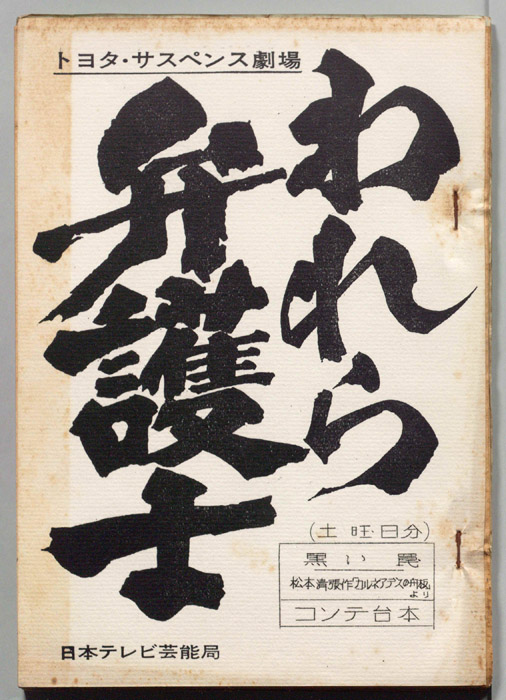 トヨタ・サスペンス劇場
われら
弁護士
(土旺・日分)
黒い罠
松本清張作「カルネアデスの舟板」
より
コンテ台本
日本テレビ芸能局